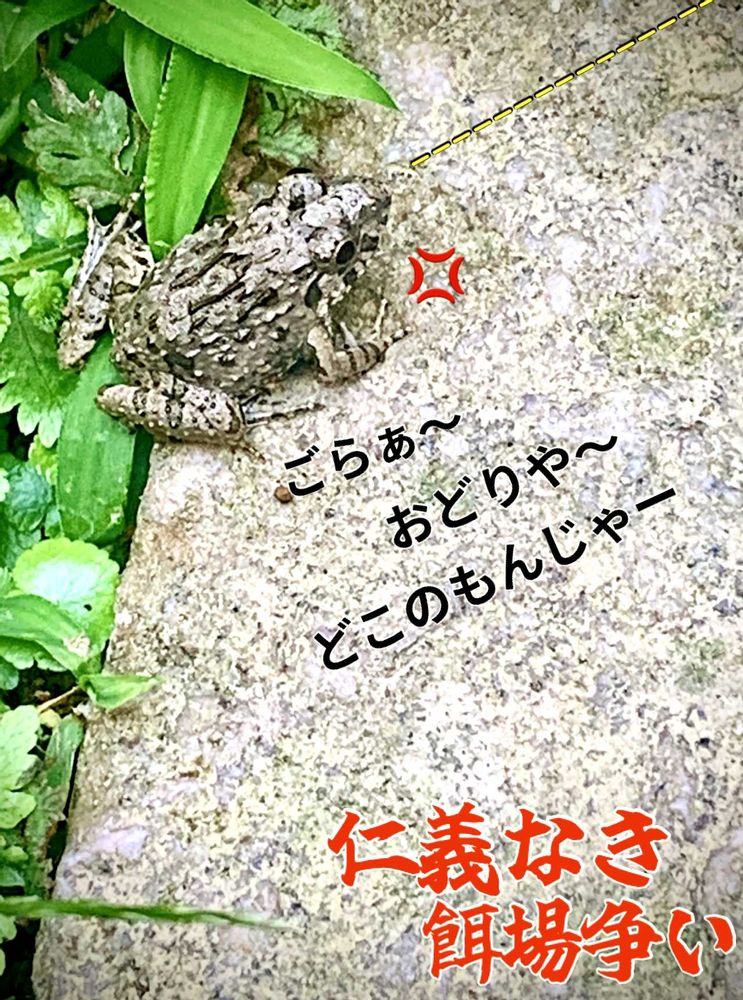 ごらぁ〜
おどりや〜
どこのもんじゃー
仁義なき
餌場争い